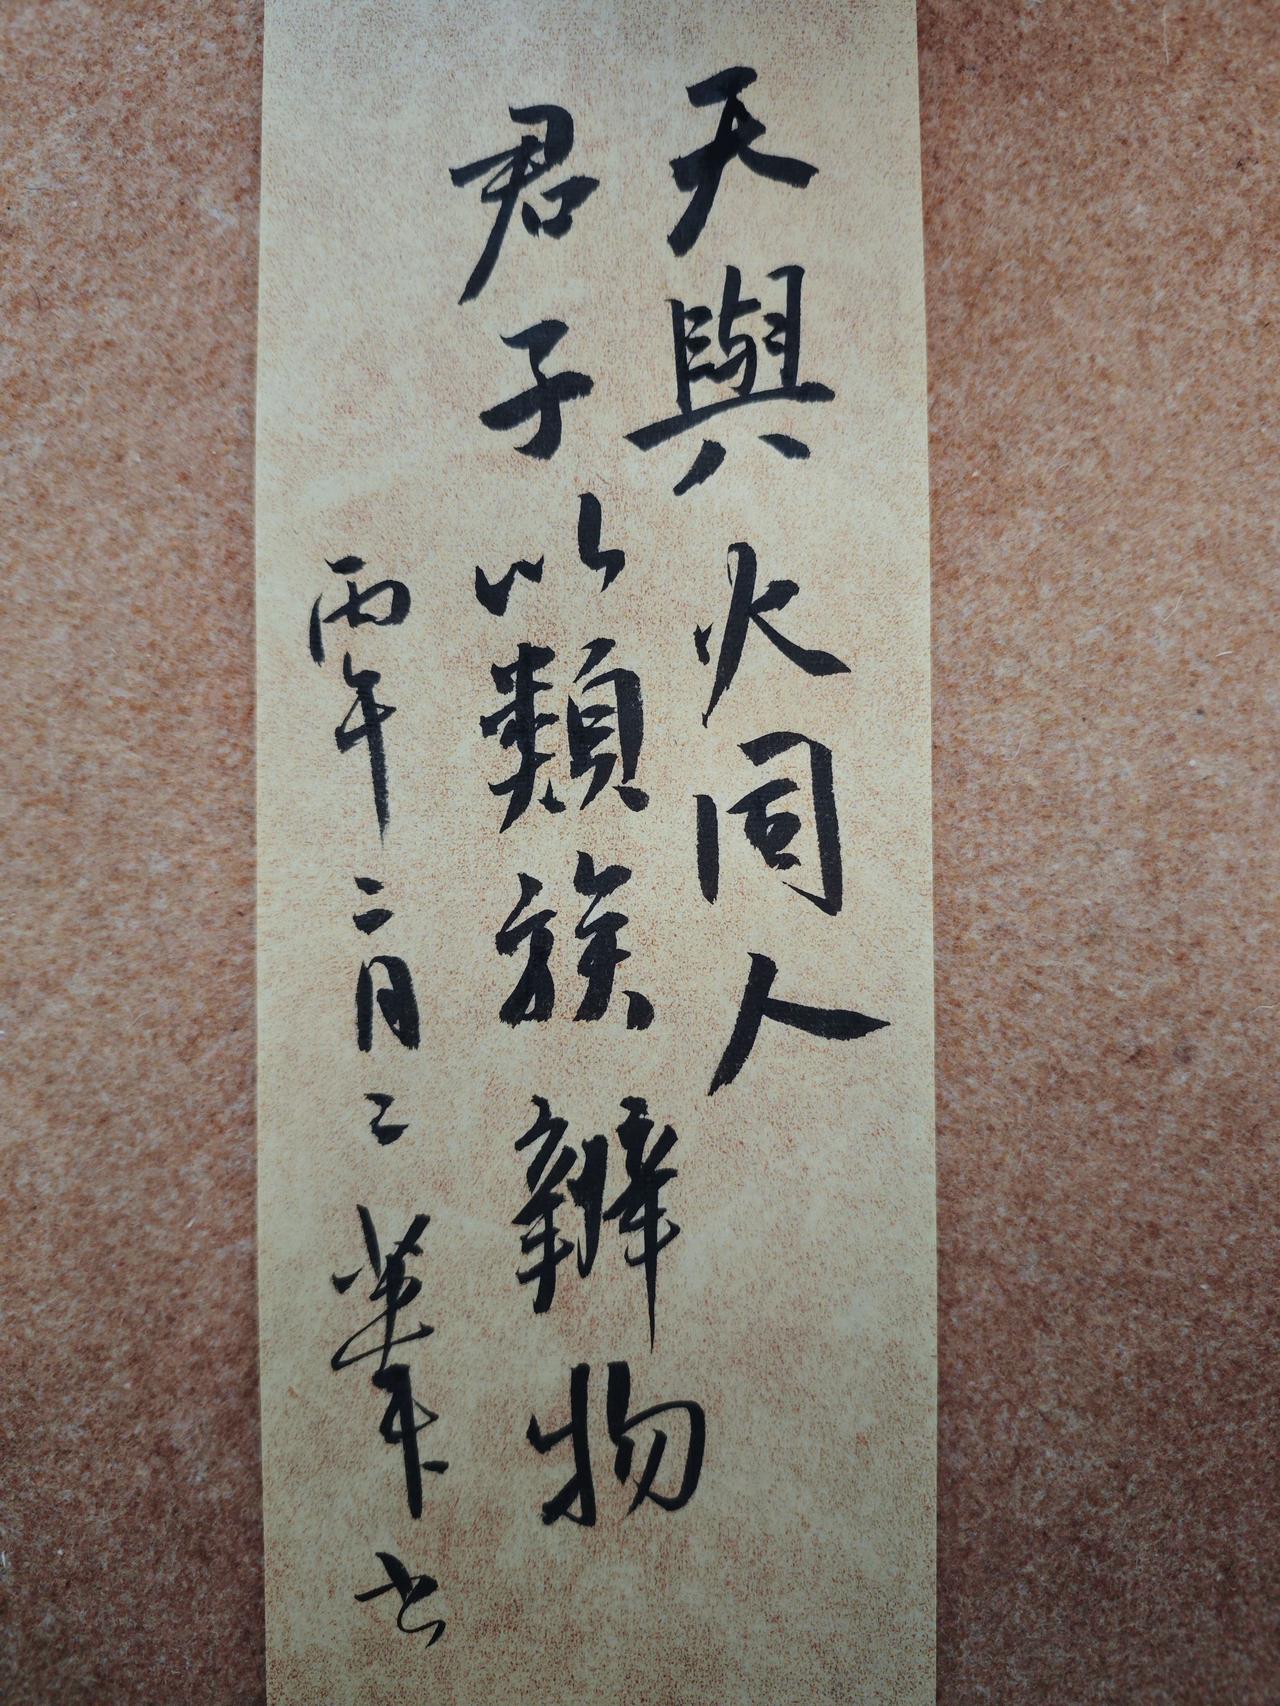 天與火同人
君子以類族辨物
丙午二月二 華 书